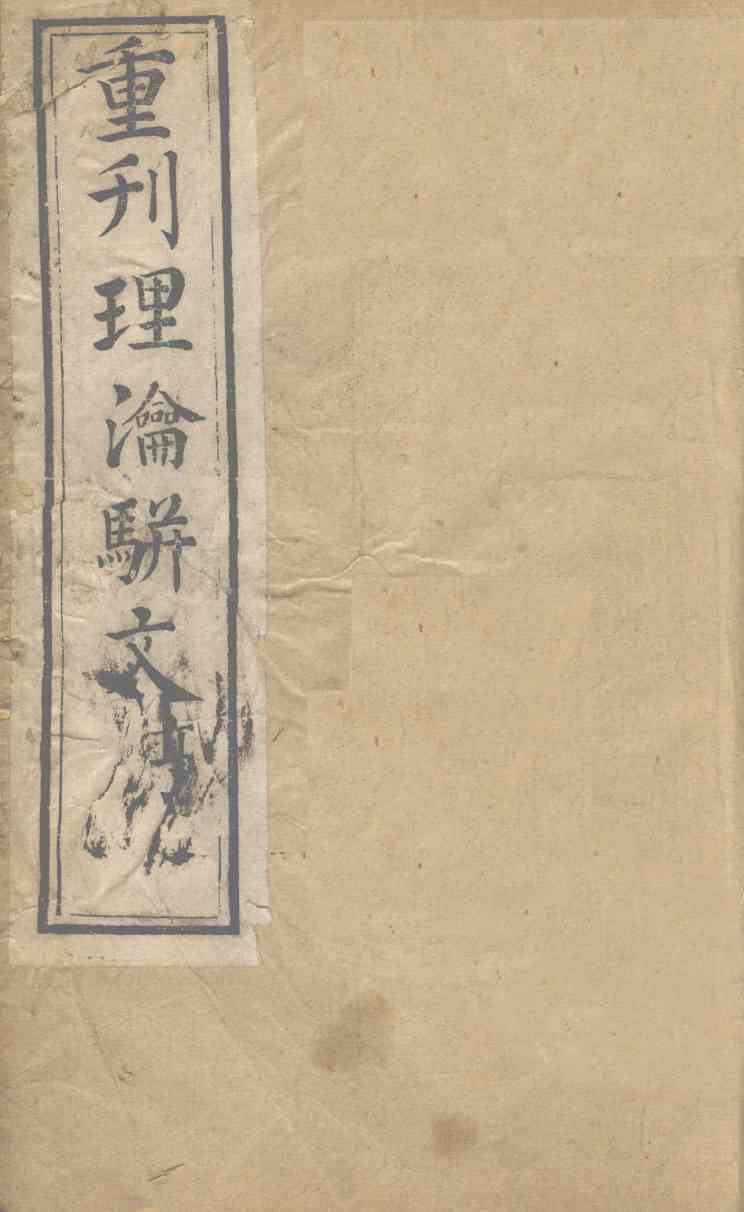 重刊理瀹駢文